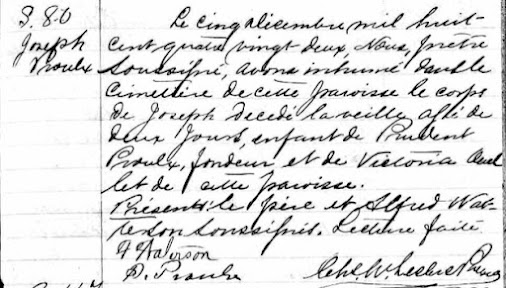 S. 80
Joseph
Proulx
Le cinq décembre mil huit-
cent quatre vingt deux, Nous, prêtre
soussigné, avons inhumé dans le
cimetière de cette paroisse le corps
de Joseph décédé la veille, agé de
deux jours, enfant de Prudent
Proulx, fondeur et de Victoria Ouel
let de cette paroisse.
Présents: le père et Alfred Wat-
terson soussignés. Lecture faite
A Waterson
P. Proulx